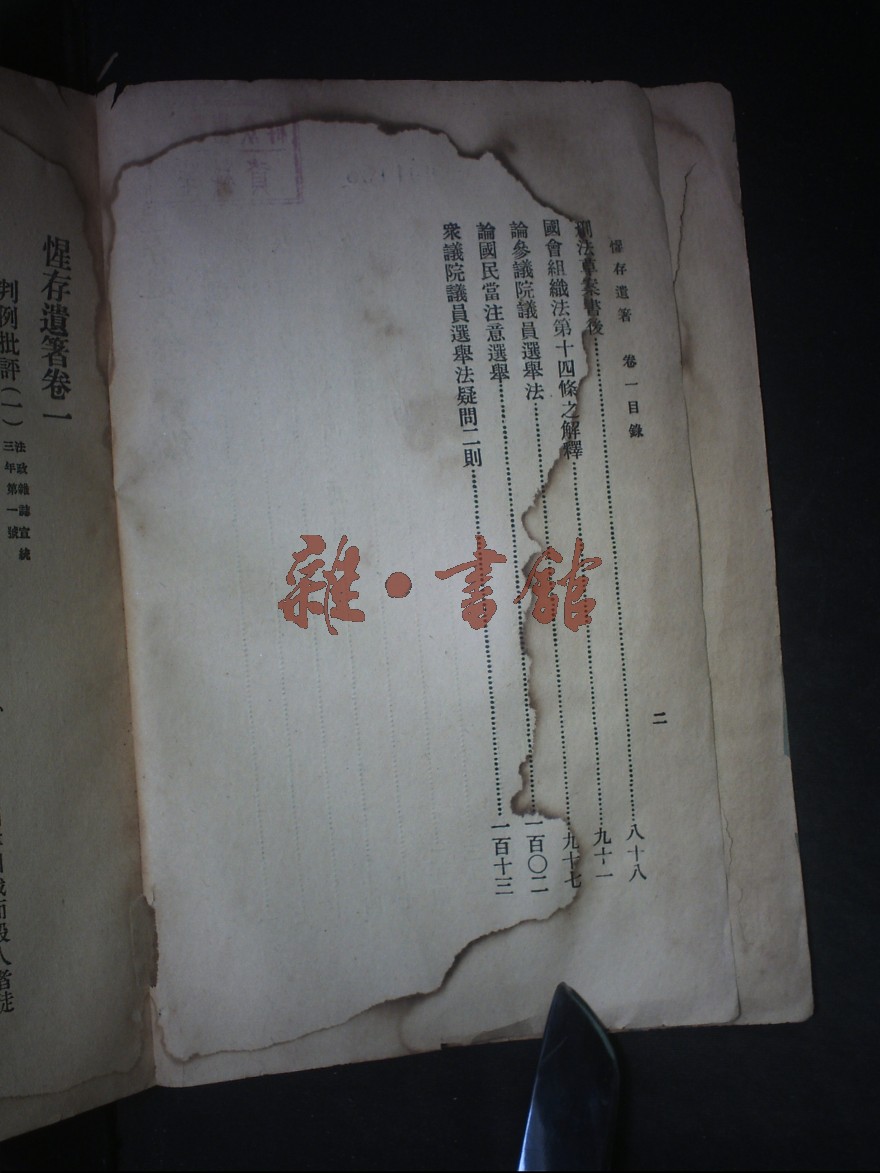 惺存遺著　卷一目錄
二
刑法草案書後……八十八
國會組織法第十四條之解釋……九十一
論參議院議員選舉法……九十七
論國民當注意選舉……一百〇二
衆議院議員選舉法疑問二則……一百十三
惺存遺著卷一
判例批評（一）
法政雜誌宣統
三年第一號
而毀人者徒
雜·書館